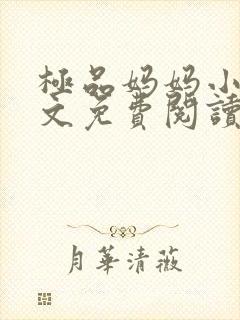 極品妈妈小
文免費閱讀
月華清薇